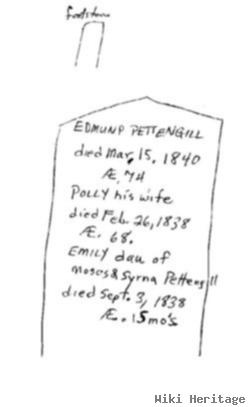 footstone
EDMUND PETTENGILL
died Mar. 15, 1840
Æ. 74
POLLY his wife
died Feb. 26, 1838
Æ. 68.
EMILY dau of
Moses & Syrna Pettengill
died Sept. 3, 1838
Æ. 15 mo's
Wiki Heritage